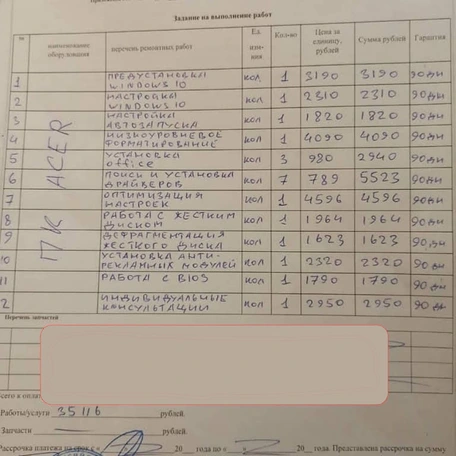 Задание на выполнение работ
№ наименование оборудования перечень ремонтных работ Ед. изме-ния Кол-во Цена за единицу, рублей Сумма рублей Гарантия
ПК ACER
1 ПРЕДУСТАНОВКА WINDOWS 10 кол 1 3190 3190 90дн
2 НАСТРОЙКА WINDOWS 10 кол 1 2310 2310 90дн
3 НАСТРОЙКА АВТОЗАПУСКА кол 1 1820 1820 90дн
4 НИЗКОУРОВНЕВОЕ ФОРМАТИРОВАНИЕ кол 1 4090 4090 90дн
5 УСТАНОВКА office кол 3 980 2940 90дн
6 ПОИСК И УСТАНОВКА ДРАЙВЕРОВ кол 7 789 5523 90дн
7 ОПТИМИЗАЦИЯ НАСТРОЕК кол 1 4596 4596 90дн
8 РАБОТА С ЖЕСТКИМ ДИСКОМ кол 1 1964 1964 90дн
9 ДЕФРАГМЕНТАЦИЯ ЖЕСТКОГО ДИСКА кол 1 1623 1623 90дн
10 УСТАНОВКА АНТИ-РЕКЛАМНЫХ МОДУЛЕЙ кол 1 2320 2320 90дн
11 РАБОТА С BIOS кол 1 1790 1790 90дн
2 ИНДИВИДУАЛЬНЫЕ КОНСУЛЬТАЦИИ кол 1 2950 2950 90дн
Перечень запчастей
сего к оплат
Работы/услуги 35116 рублей.
Запчасти рублей.
Рассрочка платежа на срок с « 20 года по « » 20 года. Представлена рассрочка на сумму